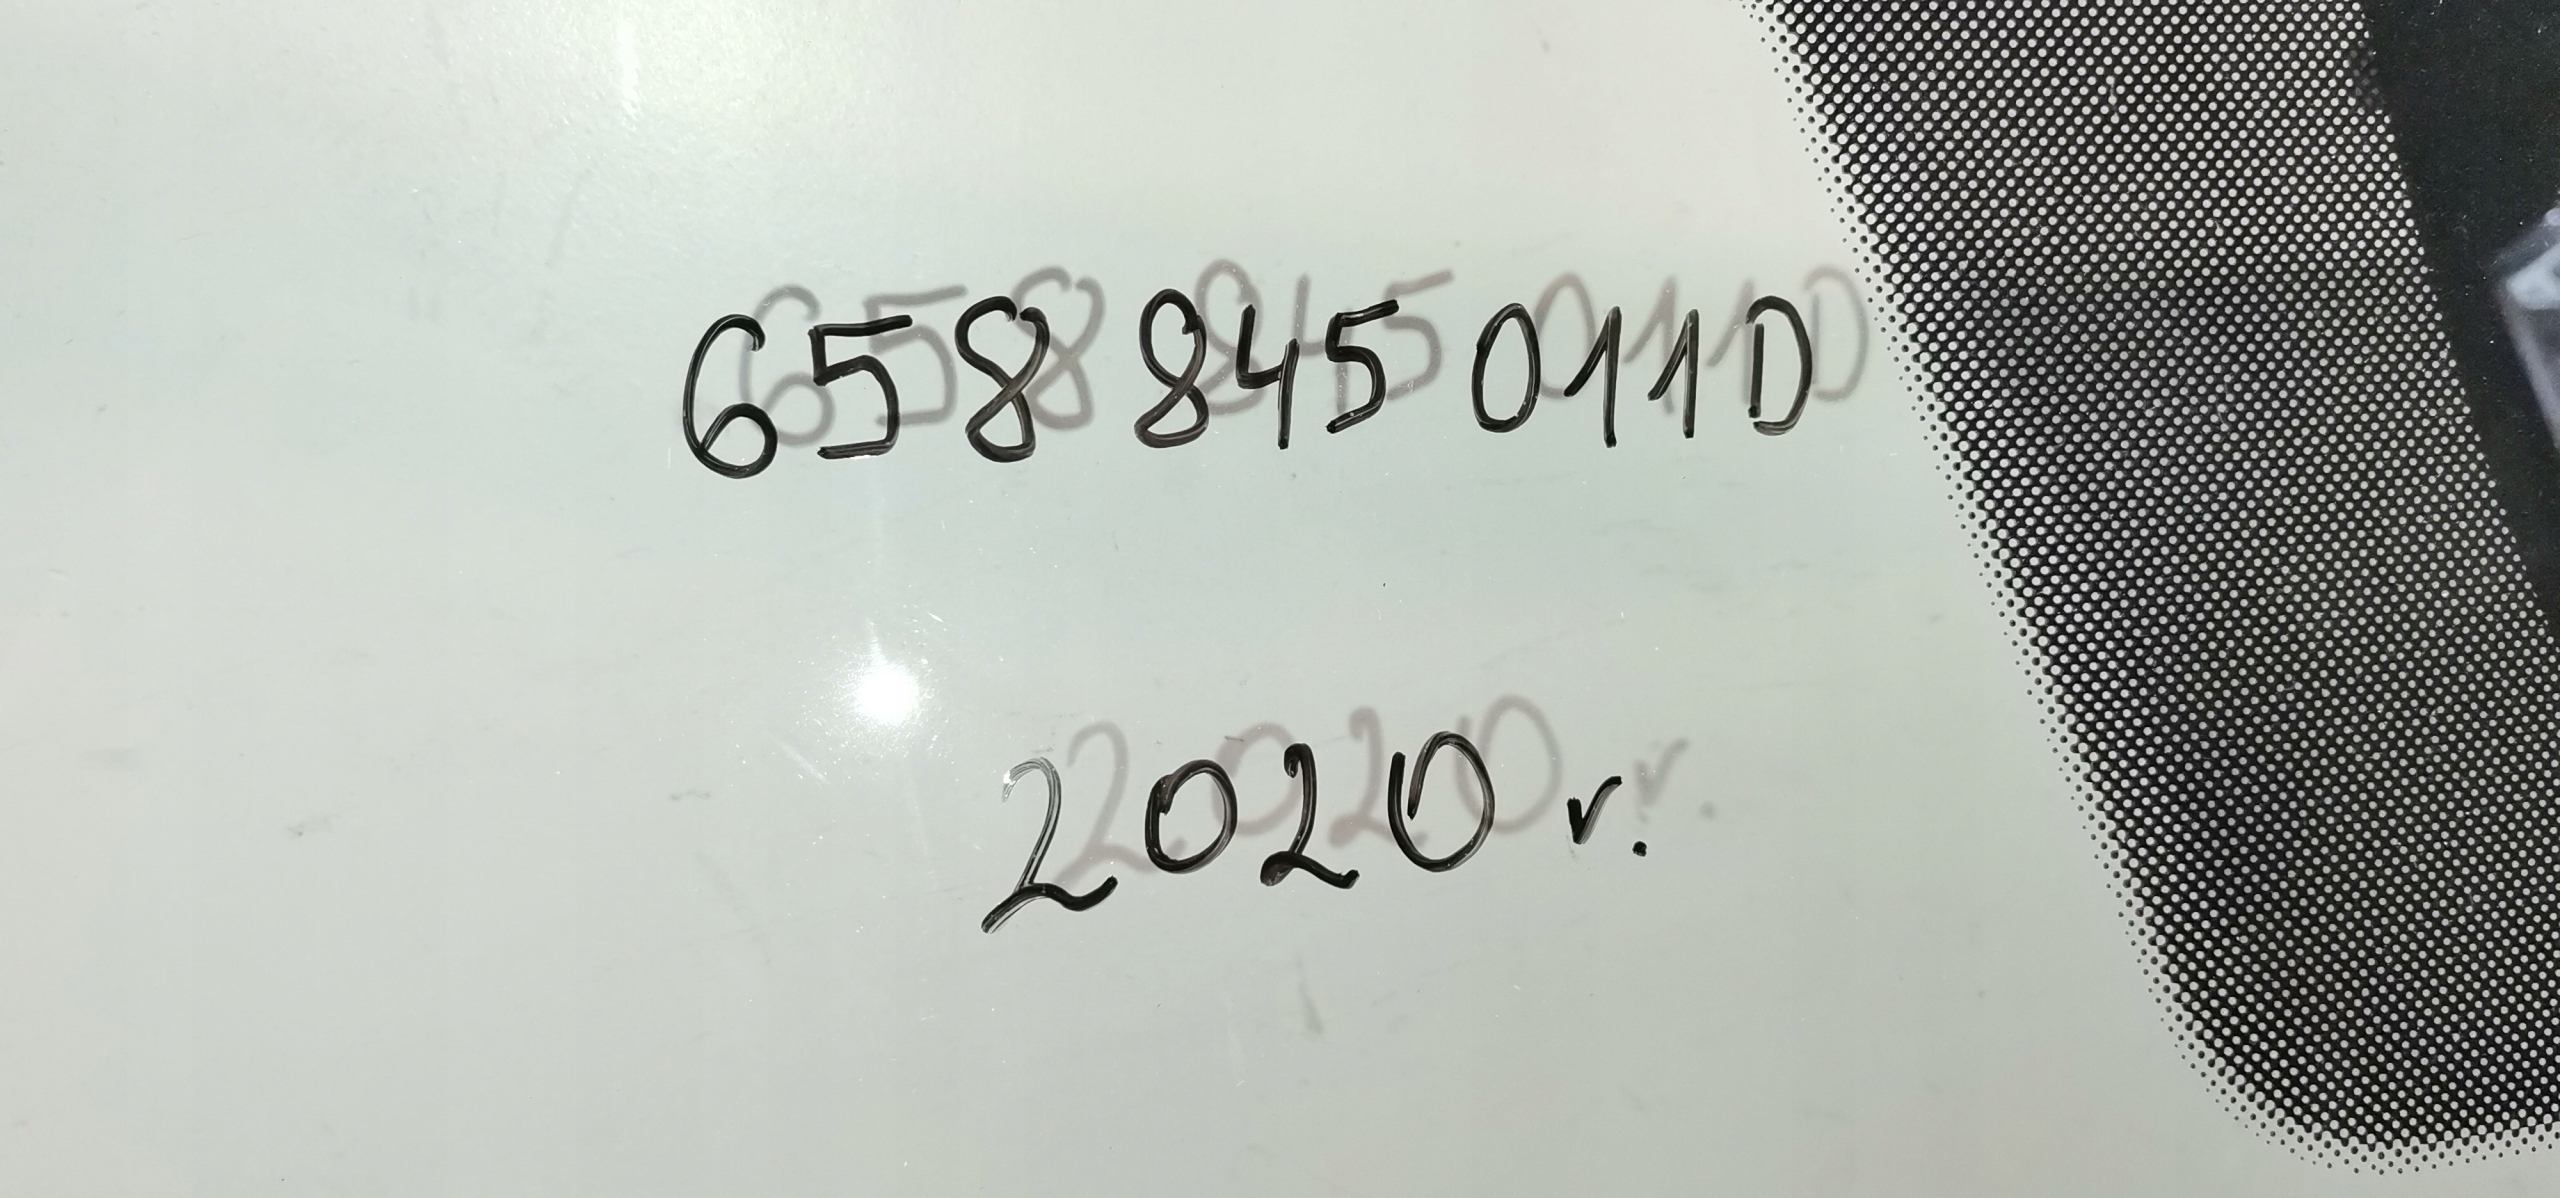 658 845 011D
2020 r.